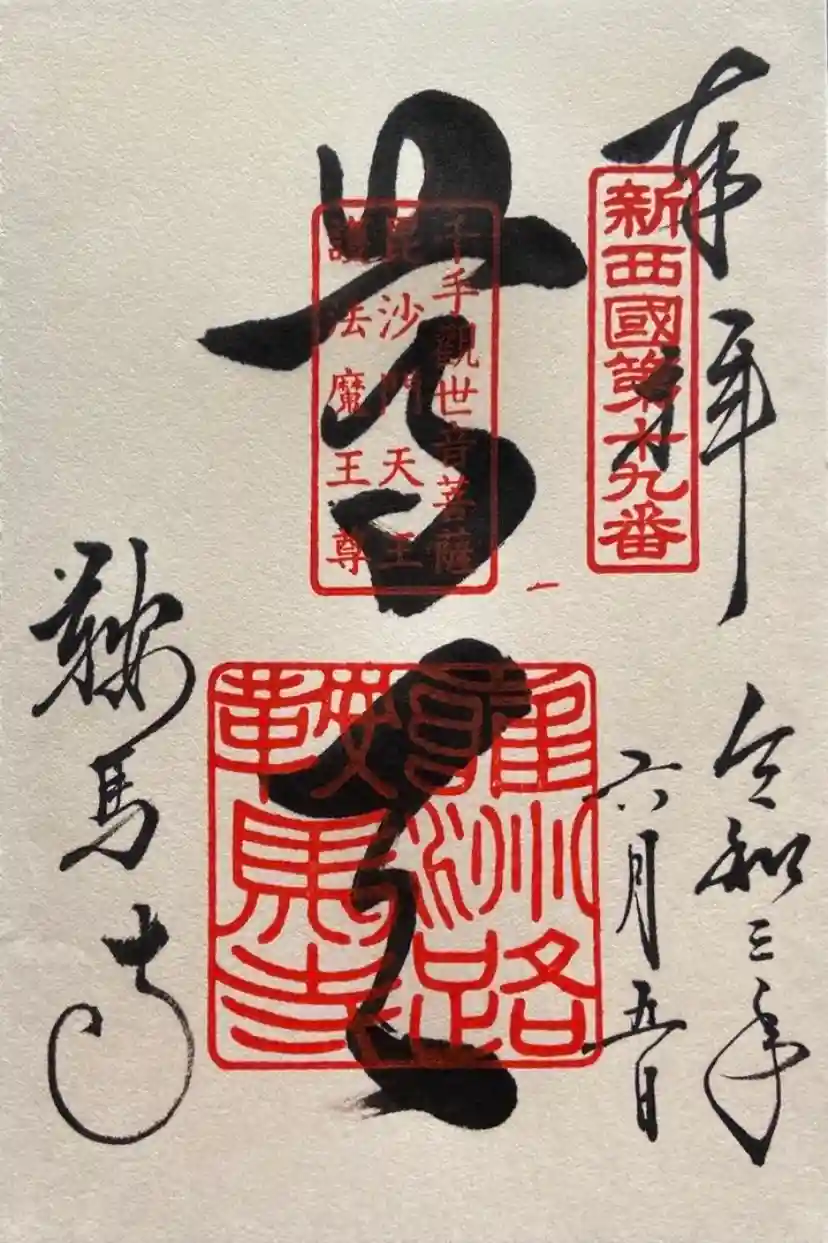 奉拝
新西國第十九番
令和三年
六月五日
尊天
千手觀世音菩薩
毘沙門天王
護法魔王尊
雍州路
鞍馬寺
鞍馬寺